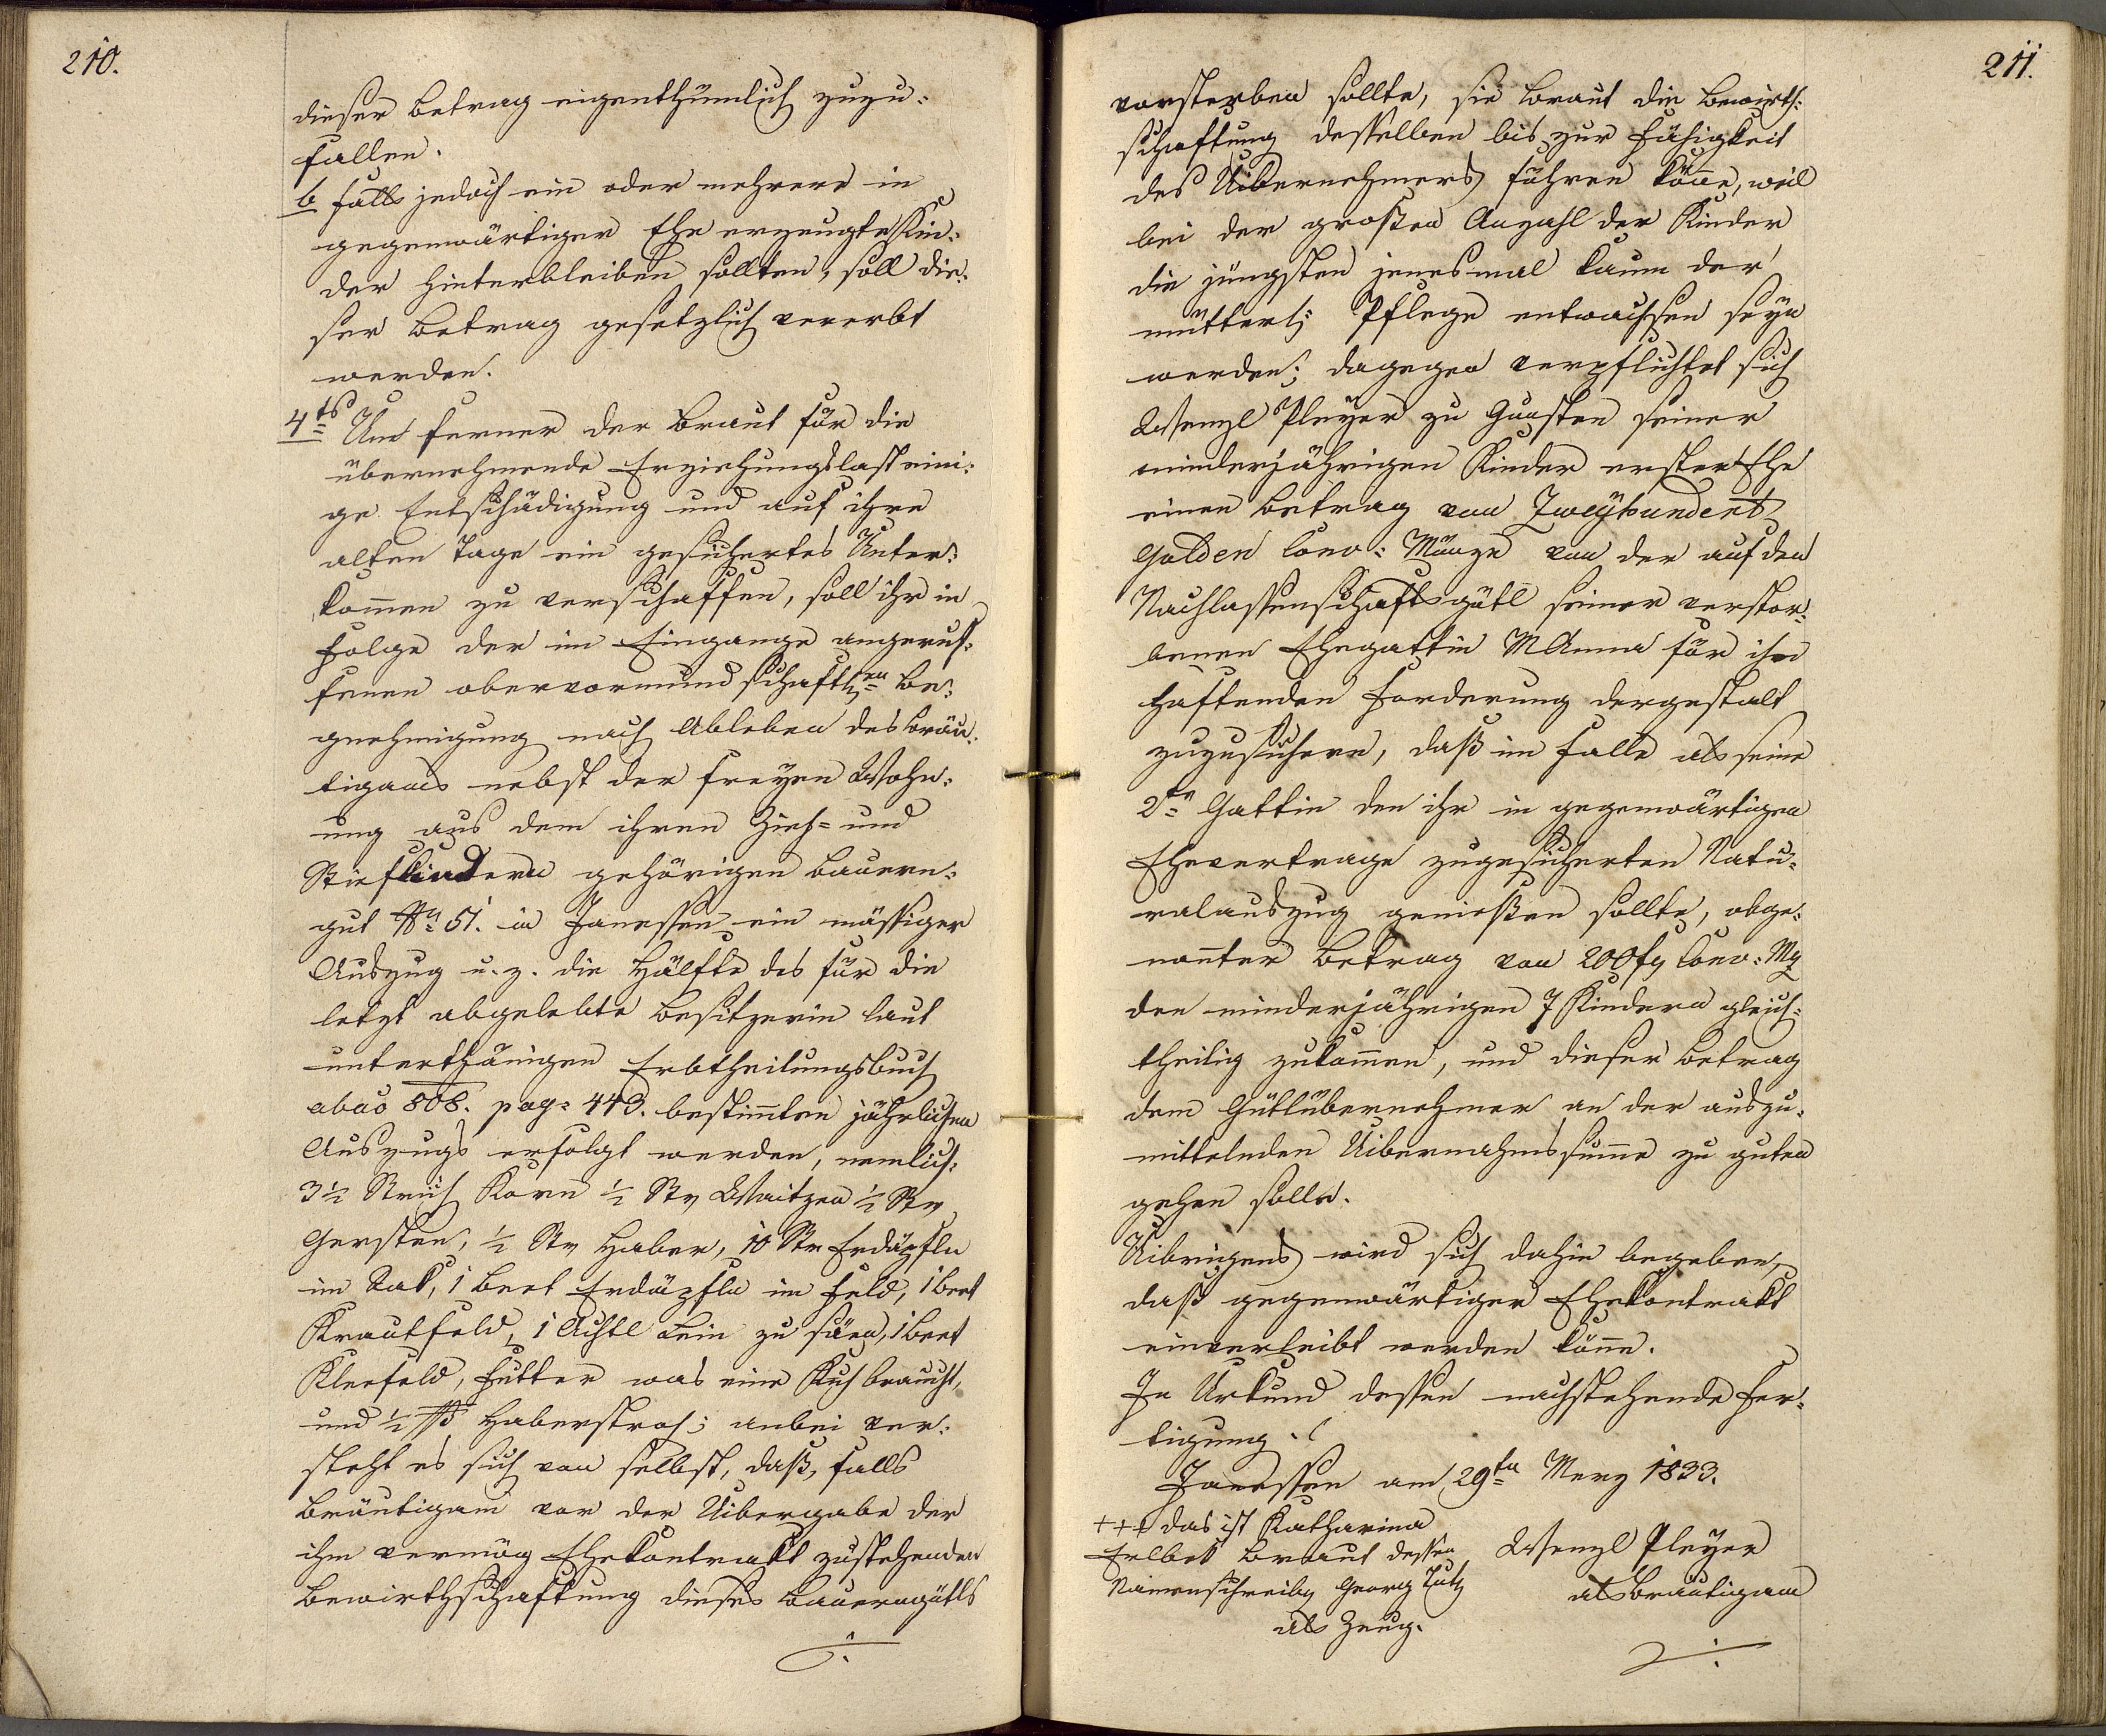 210.
dieser Betrag eigenthümlich zuzu-
fallen.
b falls jedoch ein oder mehrere in
gegenwärtiger Ehe erzeugte Kin-
der hinterbleiben sollten, soll die-
ser Betrag gesetzlich vererbt
werden.
4tens Um ferner der Braut für die
übernehmende Erziehungslast eini-
ge Entschädigung und auf ihre
alten Tage ein gesichertes Unter-
kom̄en zu verschaffen, soll ihr in
Folge der im Eingange angeruf-
fenen obervormundschaftlen Be-
gnehmigung nach Ableben des Bräu-
tigams nebst der freyen Wohn-
ung aus dem ihren Zieh- und
Stiefkindern gehörigen Bauern-
gut No 51. in Janessen ein mässiger
Auszug u. z. die Hälfte des für die
letzt abgelebte Besitzerin laut
unterthänigen Erbtheilungsbuch
abao 808. pag: 443. bestim̄ten jährlichen
Auszugs erfolgt werden, nemlich:
3 1/2 Strich Korn 1/2 Str Waitzen 1/2 Str
Gersten, 1/2 Str Haber, 10 Str Erdäpfln
im Sak, 1 Beet Erdäpfln im Feld, 1 Beet
Krautfeld, 1 Achtl Lein zu säen, 1 Beet
Kleefeld, Futter was eine Kuh braucht,
und 1/2 ßß Haberstroh; anbei ver-
steht es sich von selbst, daß, falls
Bräutigam vor der Uibergabe der
ihm vermög Ehekontrakt zustehenden
Bewirthschaftung dieses Bauerngütls
./.
211.
vorsterben sollte, die Braut die Bewirth-
schaftung desselben bis zur Fähigkeit
des Uibernehmers führen köñe, weil
bei der großen Anzahl der Kinder
die jüngsten jenesmal kaum der
mütterl: Pflege entwachsen seyn
werden; dagegen verpflichtet sich
Wenzl Pleyer zu Gunsten seiner
minderjährigen Kinder erster Ehe
einen Betrag von Zweyhundert
Gulden Conv: Münze von der auf dem
Nachlassenschaftsgütl seiner verstor-
benen Ehegattin M Anna für ihn
haftenden Forderung dergestalt
zuzusichern, daß im Falle als seine
2te Gattin den ihr in gegenwärtigen
Ehevertrage zugesicherten Natu-
ralauszug genießen sollte, obge-
nañter Betrag von 200 fl Conv: Mz
den minderjährigen 7 Kindern gleich-
theilig zukom̄en, und dieser Betrag
dem Gütlübernehmer an der auszu-
mittelnden Uibernahmssum̄e zu guten
gehen solle.
Uibrigens wird sich dahin begeben,
daß gegenwärtiger Ehekontrakt
einverleibt werden köñe.
In Urkund dessen nachstehende Fer-
tigung.
Janessen am 29ten Merz 1833.
+++ das ist Katharina
Erlbek Braut dessen
Namenschreiber Georg Lutz
als Zeug.
Wenzl Pleyer
als Bräutigam
./.